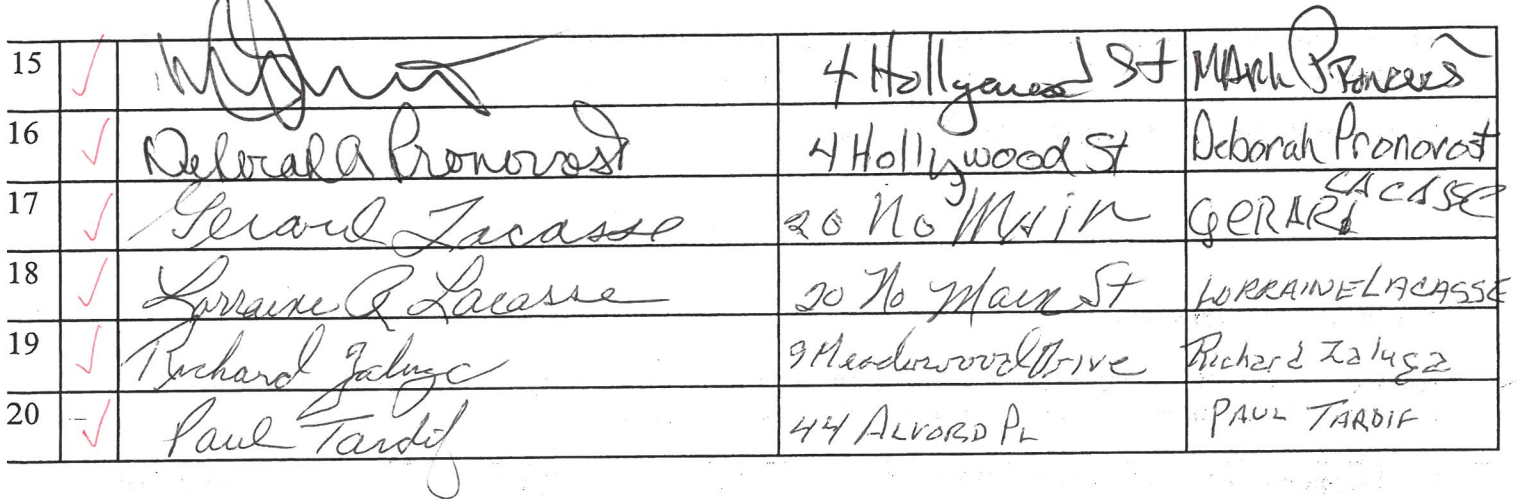 15 4 Hollywood St Mark
16 Deborah A Pronovost 4 Hollywood St Deborah Pronovost
17 Gerard Lacasse 20 No Main GERARD LACASSE
18 Lorraine A Lacasse 20 No Main St LORRAINE LACASSE
19 Richard Zaluga 9 Meadowood Drive Richard Zaluga
20 Paul Tardif 44 ALVORD PL PAUL TARDIF